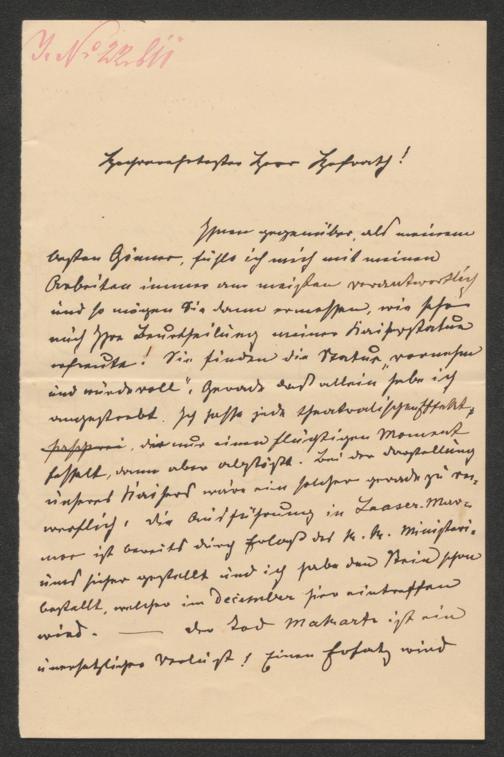 J. No 22.611
Hochverehrtester Herr Hofrath!
Ihnen gegenüber, als meinem
besten Gönner, fühle ich mich mit meinen
Arbeiten immer am meisten verantwortlich
und so mögen Sie dann ermessen, wie sehr
mich Ihre Beurtheilung meiner Kaiserstatue
erfreute! Sie finden die Statue „vornehm
und würdevoll“, Gerade das allein habe ich
angestrebt. Ich hasse jede theatralische Effekt-
hascherei, die nur einen flüchtigen Moment
fesselt, dann aber abstößt. Bei der Darstellung
unseres Kaisers wäre ein solcher geradezu ver-
werflich. Die Ausführung in Laaser-Mar-
mor ist bereits durch Erlaß des k. k. Ministeri-
ums sicher gestellt und ich habe den Stein schon
bestellt, welcher im December hier eintreffen
wird. — Der Tod Makarts ist ein
unersetzlicher Verlust! Einen Ersatz wird